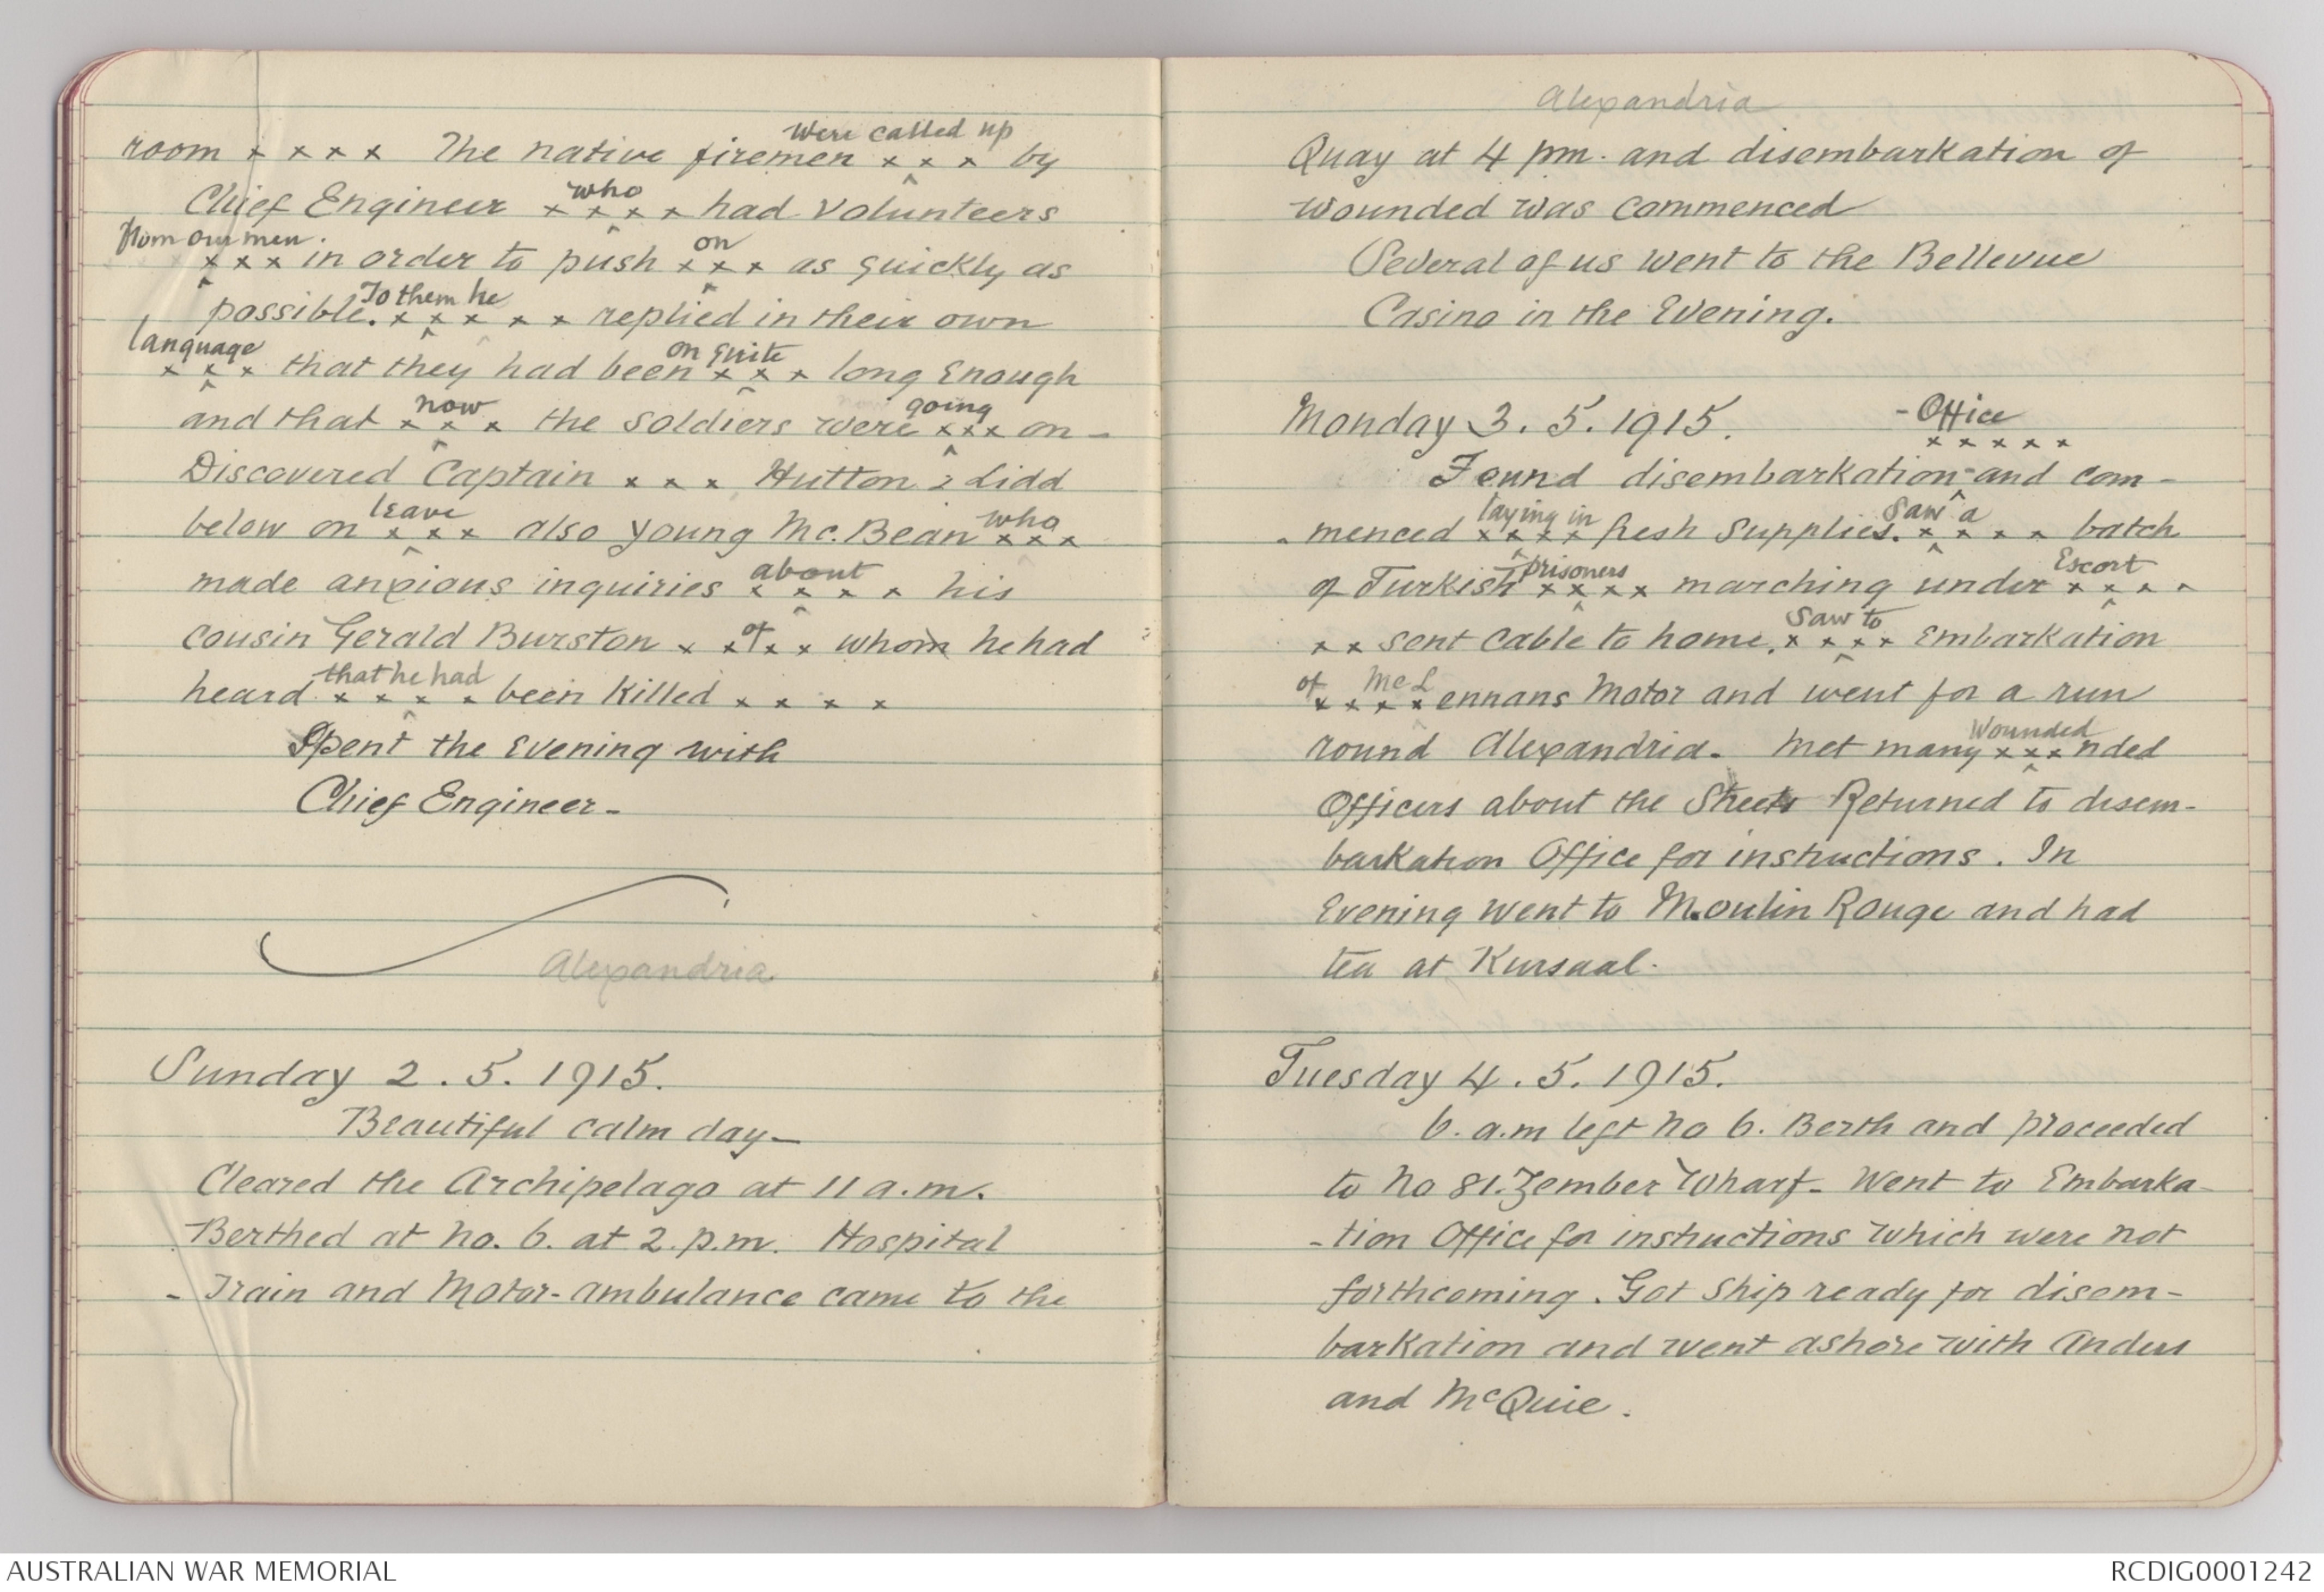 were called up
room x x x x The native firemen x x x by
who
Chief Engineer x x x x had volunteers
from our men. on
x x x in order to push x x x as quickly as
To them he
possible. x x x x x replied in their own
language on quite
x x x that they had been x x x long enough
now going
and that x x x the soldiers were x x x on -
Discovered Captain x x x Hutton & Lidd
leave who
below on x x x also young Mc. Bean x x x
about
made anxious inquiries x x x x his
of
cousin Gerald Burston x x x x whom he had
that he had
heard x x x x been killed x x x x
Spent the evening with
Chief Engineer -
Alexandria
Sunday 2 . 5 . 1915.
Beautiful calm day -
Cleared the Archipelago at 11 a.m.
Berthed at no. 6. at 2. p.m. Hospital
- Train and Motor-ambulance came to the
Alexandria
Quay at 4 pm. and disembarkation of
wounded was commenced
Several of us went to the Bellevue
Casino in the Evening.
- Office
Monday 3 . 5 . 1915. x x x x x
Found disembarkation - and com -
laying in Saw a
- menced x x x x fresh supplies. x x x x batch
prisoners Escort
of Turkish x x x x marching under x x x x
Saw to
x x sent cable to home. x x x x Embarkation
of McL
x x x x ennans Motor and went for a run
Wounded
round Alexandria. Met many x x x nded
Officers about the Streets Returned to disem-
barkation Office for instructions . In
Evening went to Moulin Rouge and had
tea at Kursaal.
Tuesday 4 . 5 . 1915.
6. a.m left no 6. Berth and proceeded
to no 81. Zember Wharf - Went to Embarka-
-tion Office for instructions which were not
forthcoming . Got ship ready for disem-
barkation and went ashore with Anders
and McQuie .
AUSTRALIAN WAR MEMORIAL
RCDIG0001242